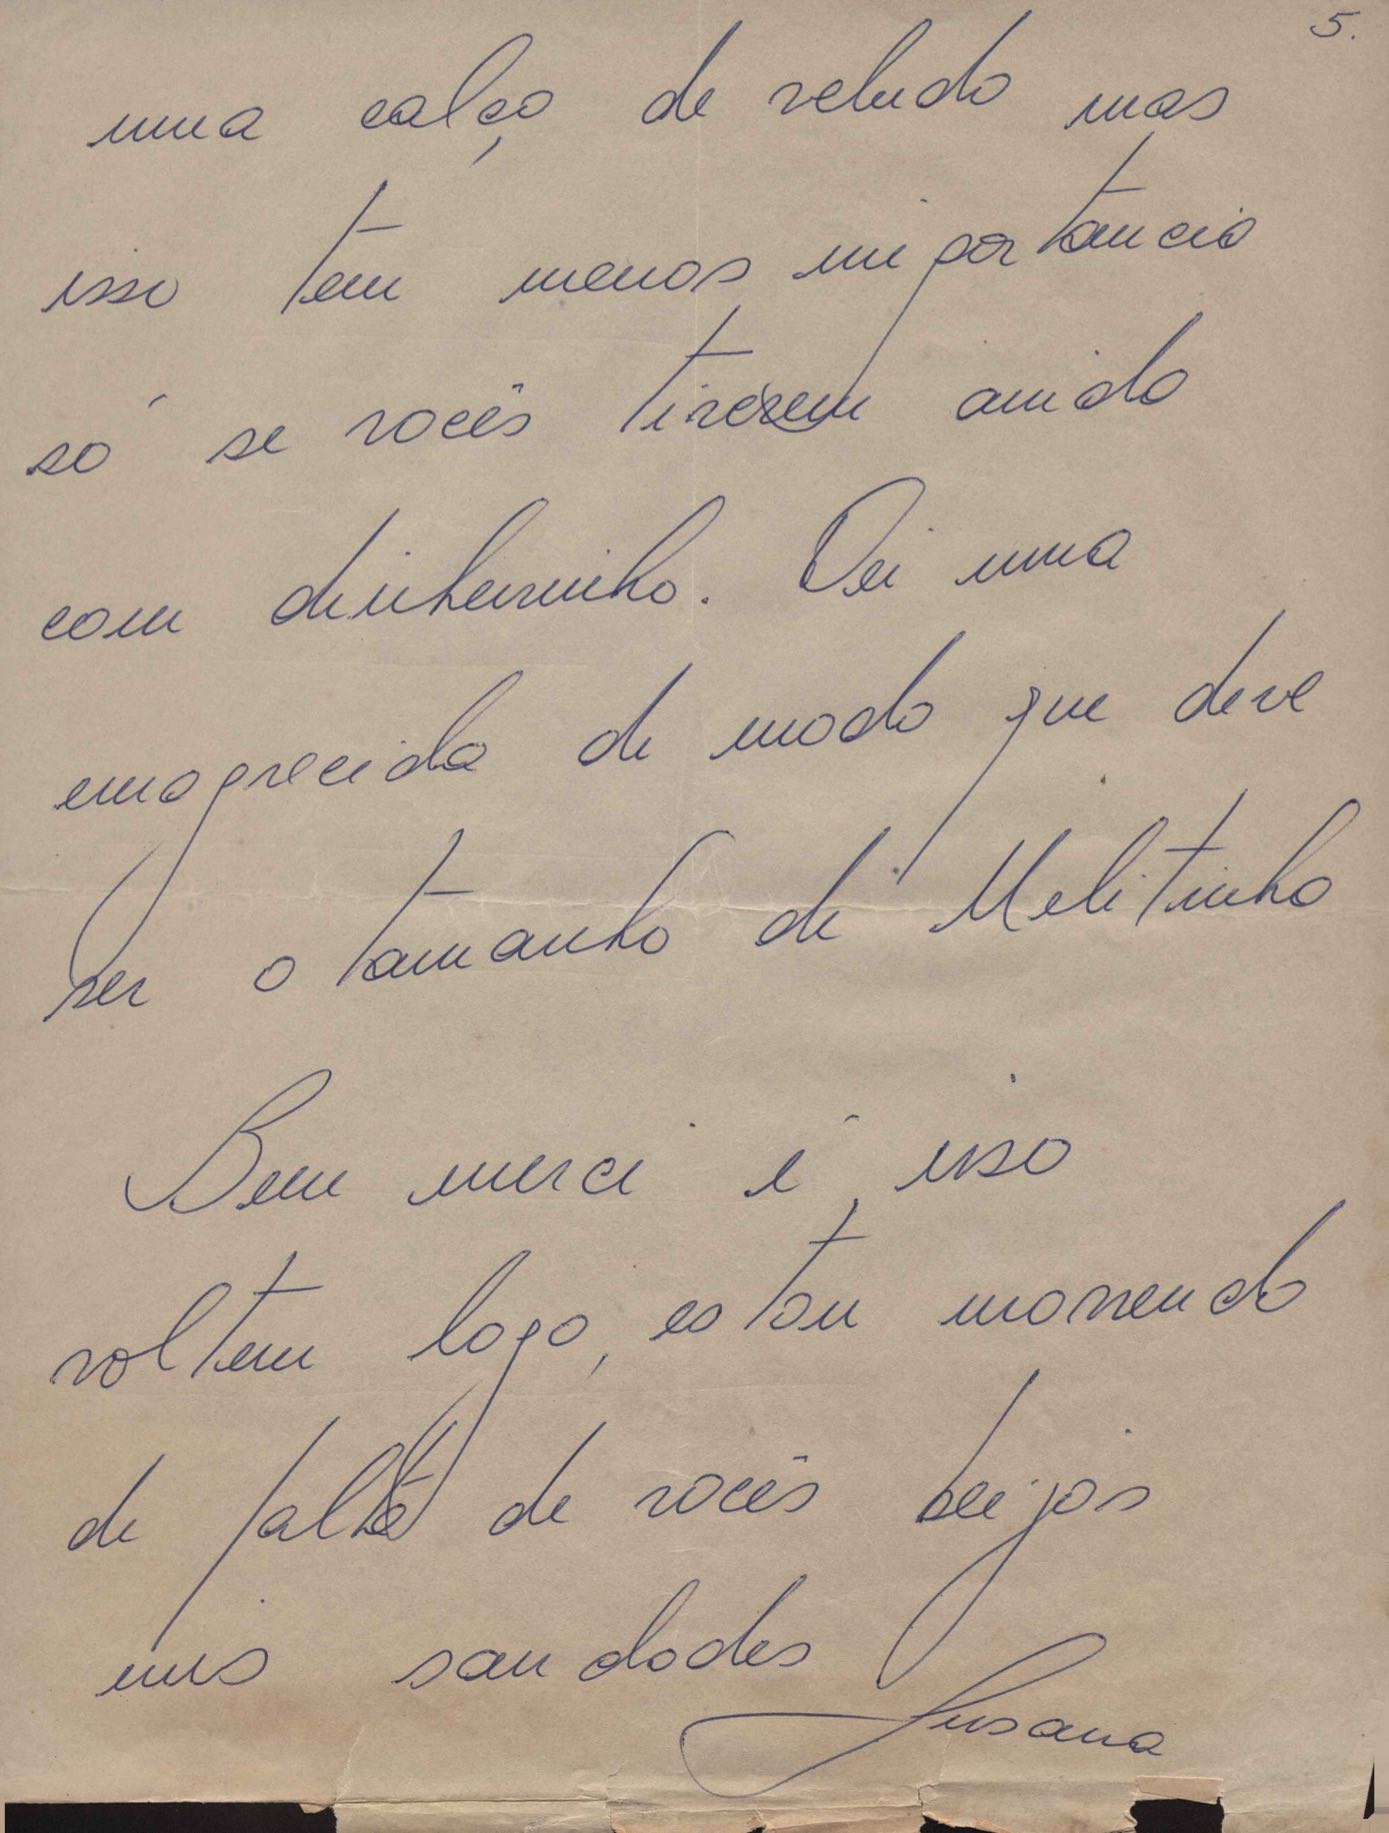 5.
uma calça de veludo mas
isso tem menos importancia
só se vocês tiverem ainda
com dinheirinho. Dei uma
emagrecida de modo que deve
ser o tamanho de Melitinho
Bem merci é isso
voltem logo, estou morrendo
de falta de vocês beijos
mis saudades
Susana